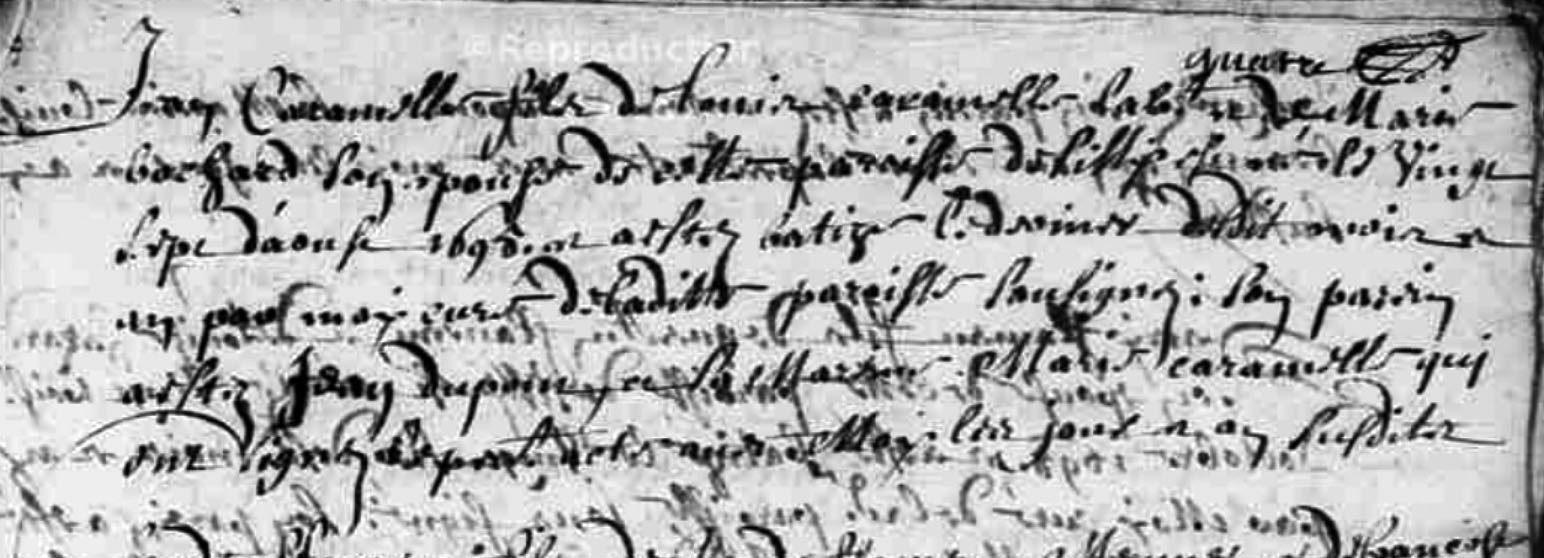 © Reproduction
quatre
Jean Caramelle fils de Louis Caramelle et de Marie
bochard son epouse de cette paroisse de vingt
sept d'aoust 1698 et a esté batizé le dernier dudit mois et
an par moy curé de ladite paroisse soussigné : son parrin
a esté Jean dupoin et sa Marrine Marie caramelle qui
ont signé le present acte avec Moy les jour et an susdits